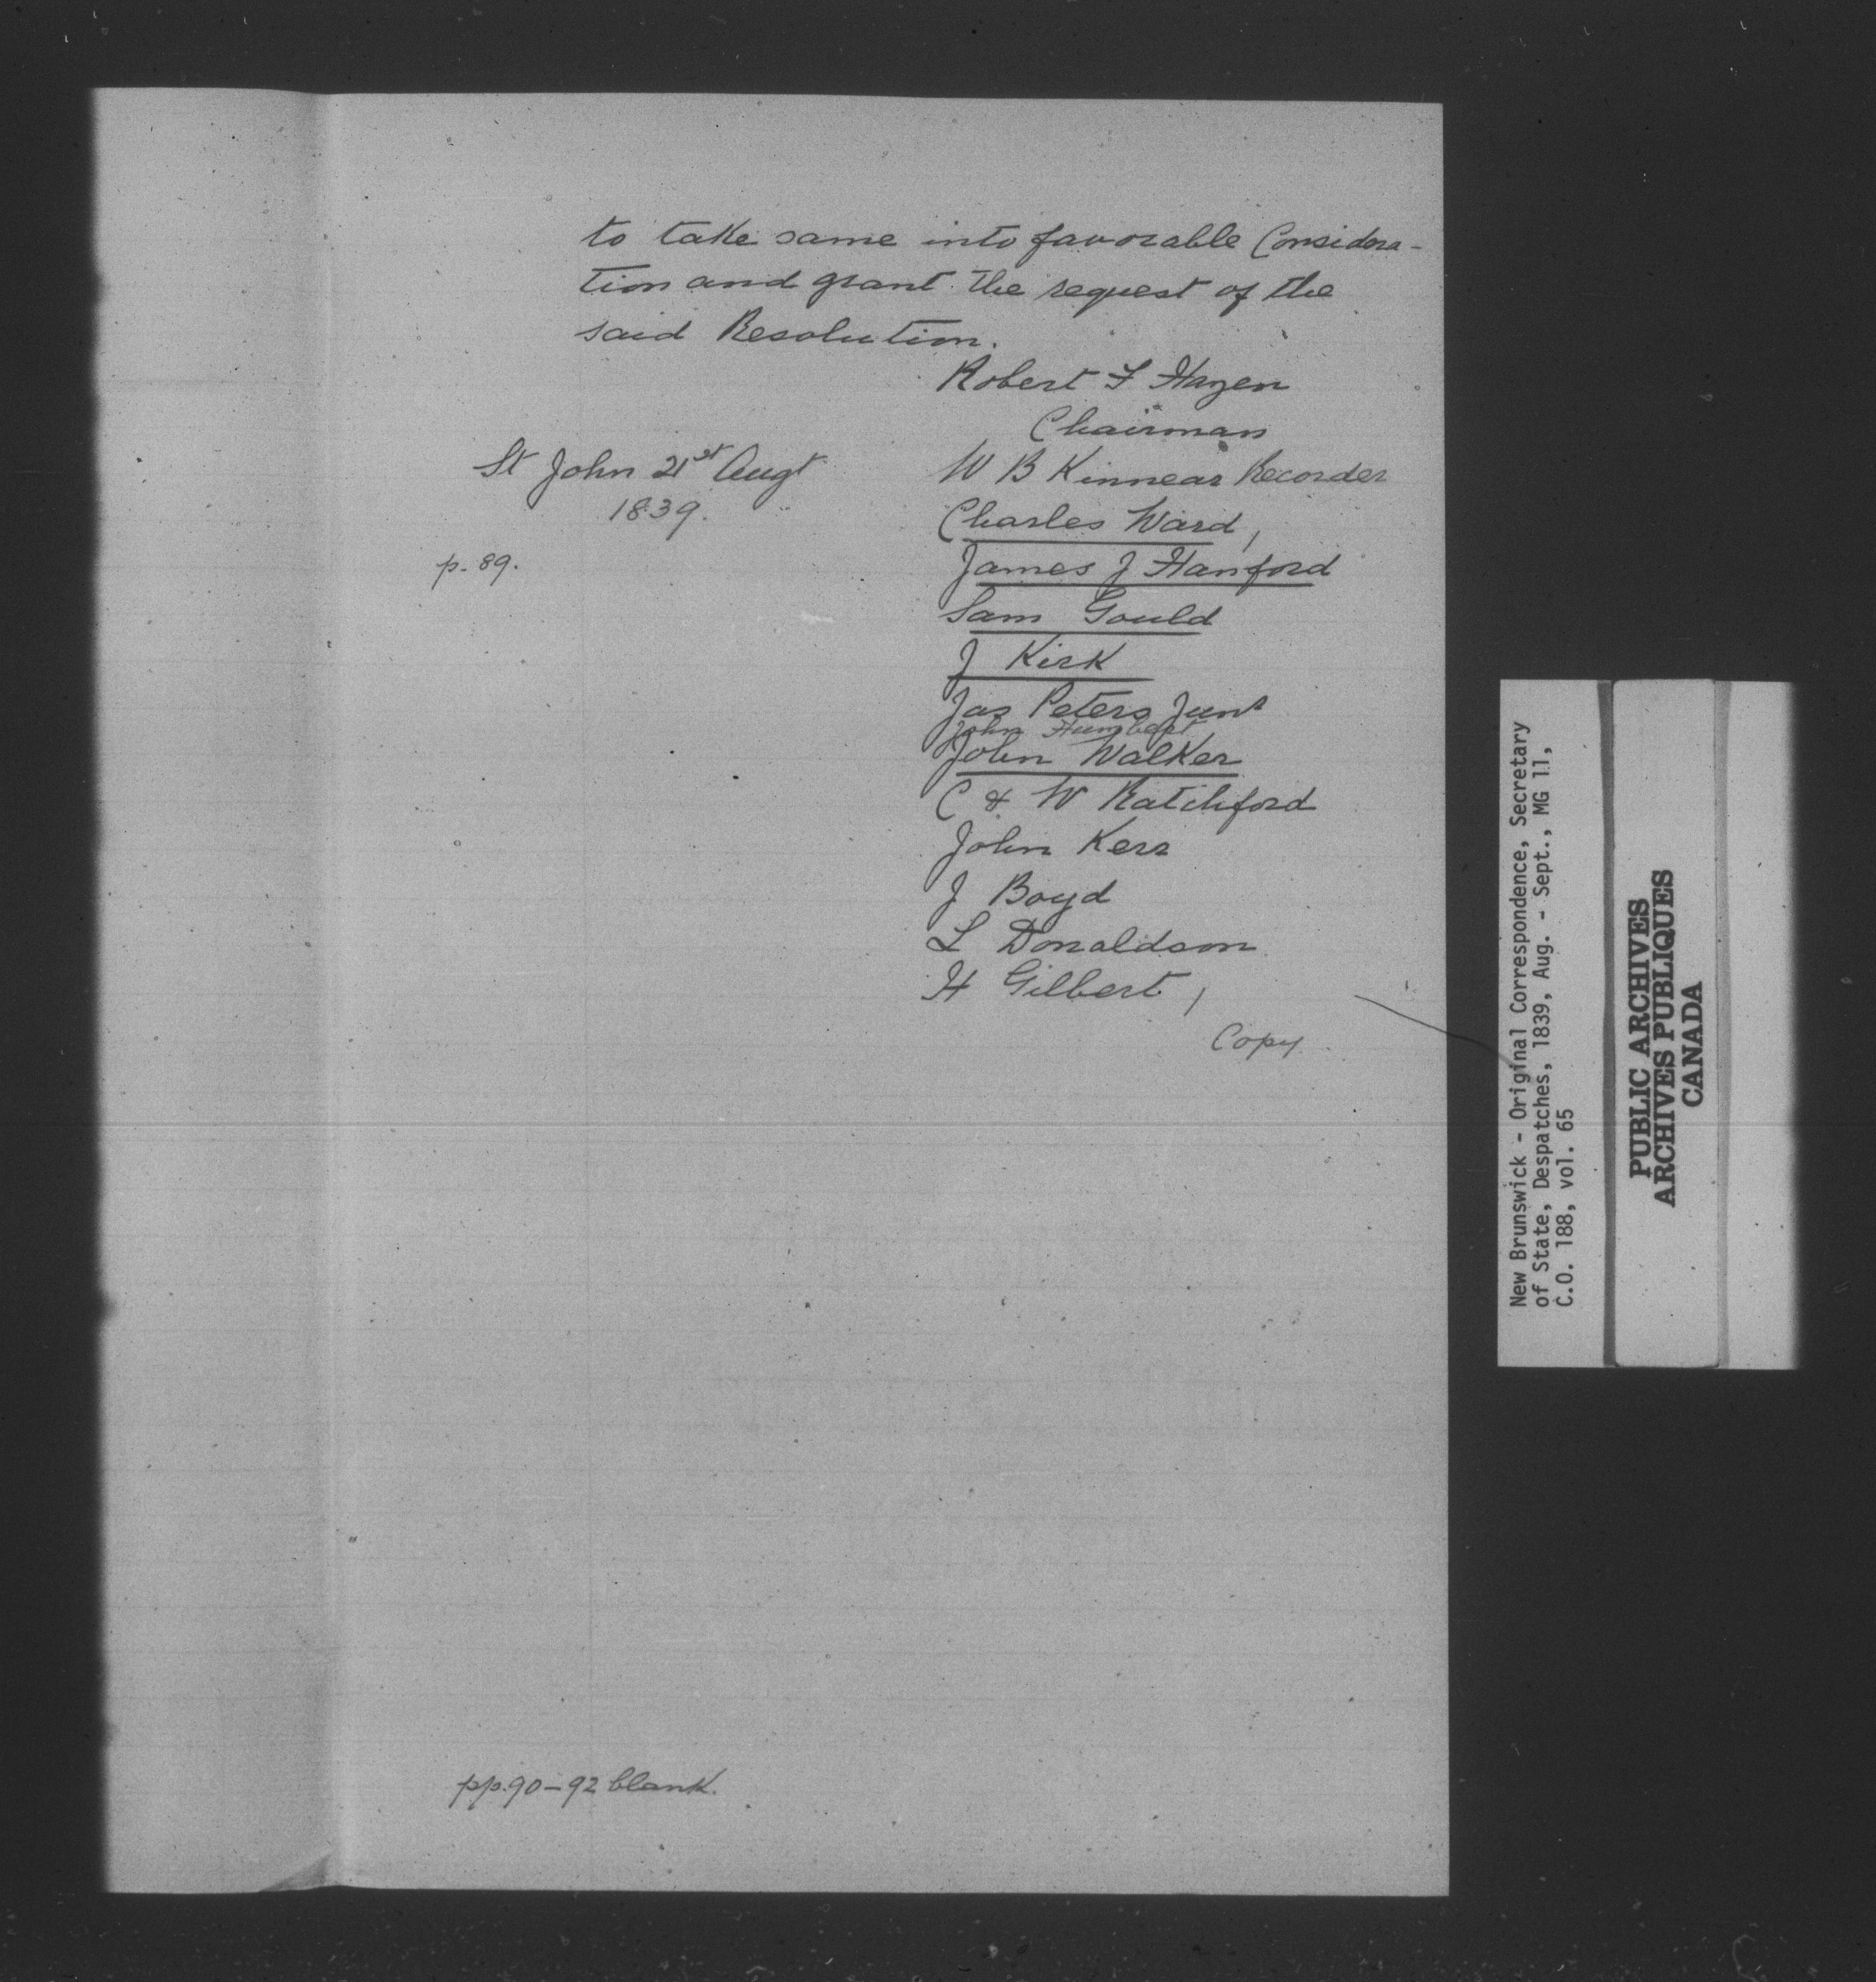 to take same into favorable Considera-
tion and grant the request of the
said Resolution.
Robert F Hazen
Chairman
St John 21st Augt
1839.
W B Kinnear Recorder
Charles Ward,
p. 89.
James J Hanford
Sam Gould
J Kirk
Jas Peters Junr
John Humbert
John Walker
C & W Ratchford
John Kerr
J Boyd
L Donaldson
H Gilbert,
Copy.
pp. 90-92 blank.
New Brunswick - Original Correspondence, Secretary
of State, Despatches, 1839, Aug. - Sept., MG 11,
C.O. 188, vol. 65
PUBLIC ARCHIVES
ARCHIVES PUBLIQUES
CANADA